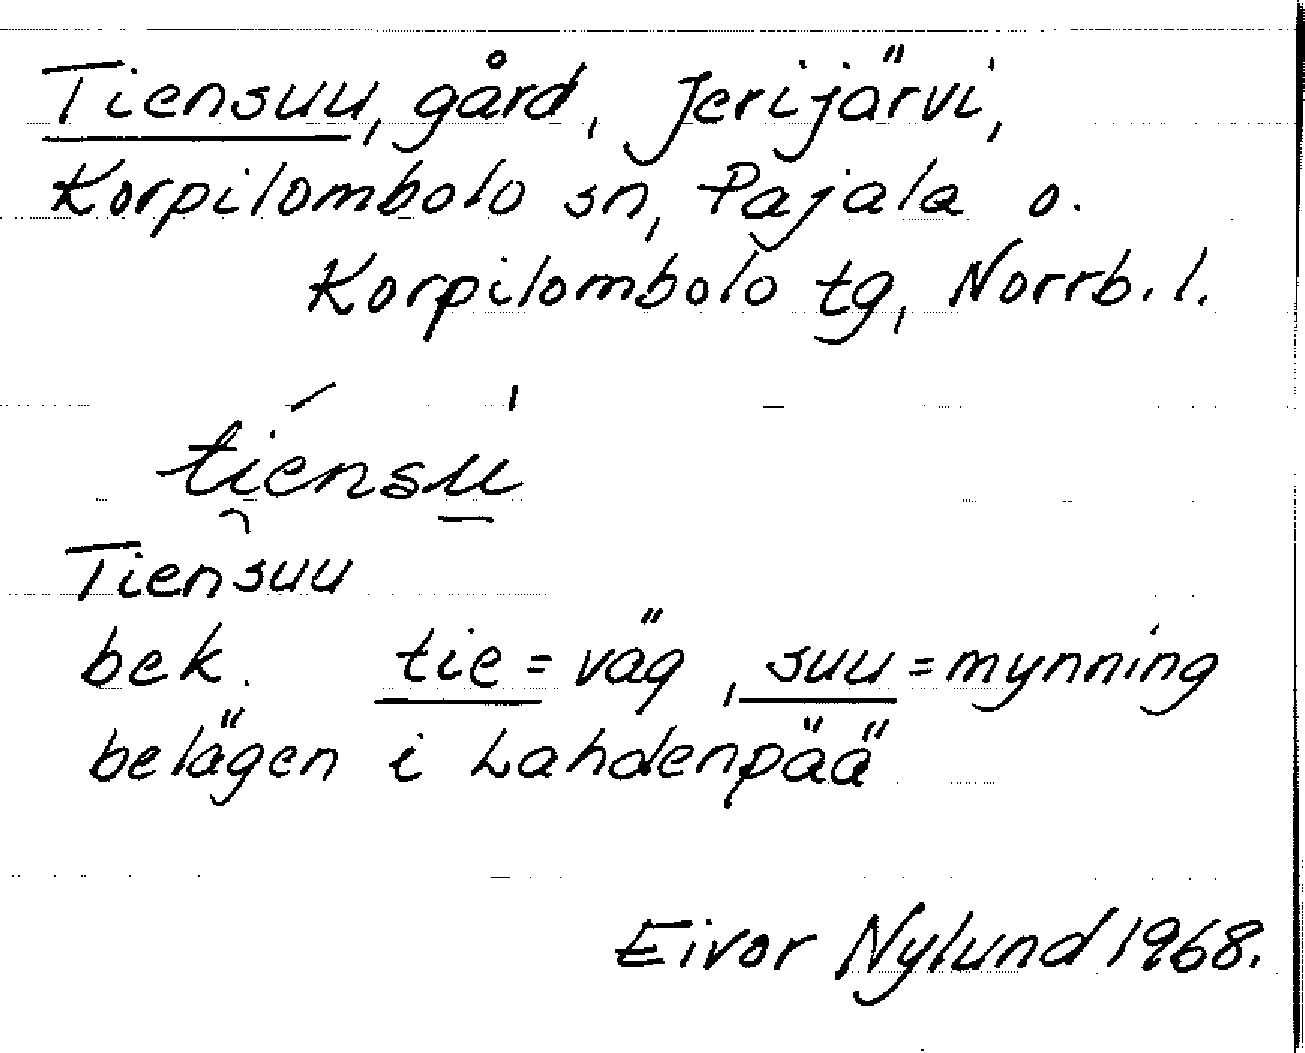 Tiensuu, gård, Jerijärvi,
Korpilombolo sn, Pajala o.
Korpilombolo tg, Norrb. l.
tiensu
Tiensuu
bek. tie = väg, suu = mynning
belägen i Lahdenpää
Eivor Nylund 1968.